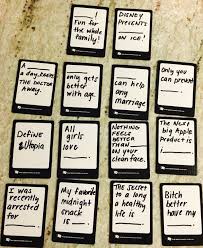 ________!
Fun for the
whole
family!
DISNEY
PRESENTS:
________
ON ICE!
A ________
a day, keeps
THE DOCTOR
AWAY.
________
only gets
better
with age.
________
can help
any
marriage
Only you
can prevent
________.
Define
Utopia
All
girls
love
________.
NOTHING
FEELS
BETTER THAN
________ ON
your clean
face.
The Next
big Apple
Product is
________!
I was
recently
arrested
for
________
My favorite
midnight
snack
is ________.
The secret
to a long
& healthy
life is
________
Bitch
better
have my
________.